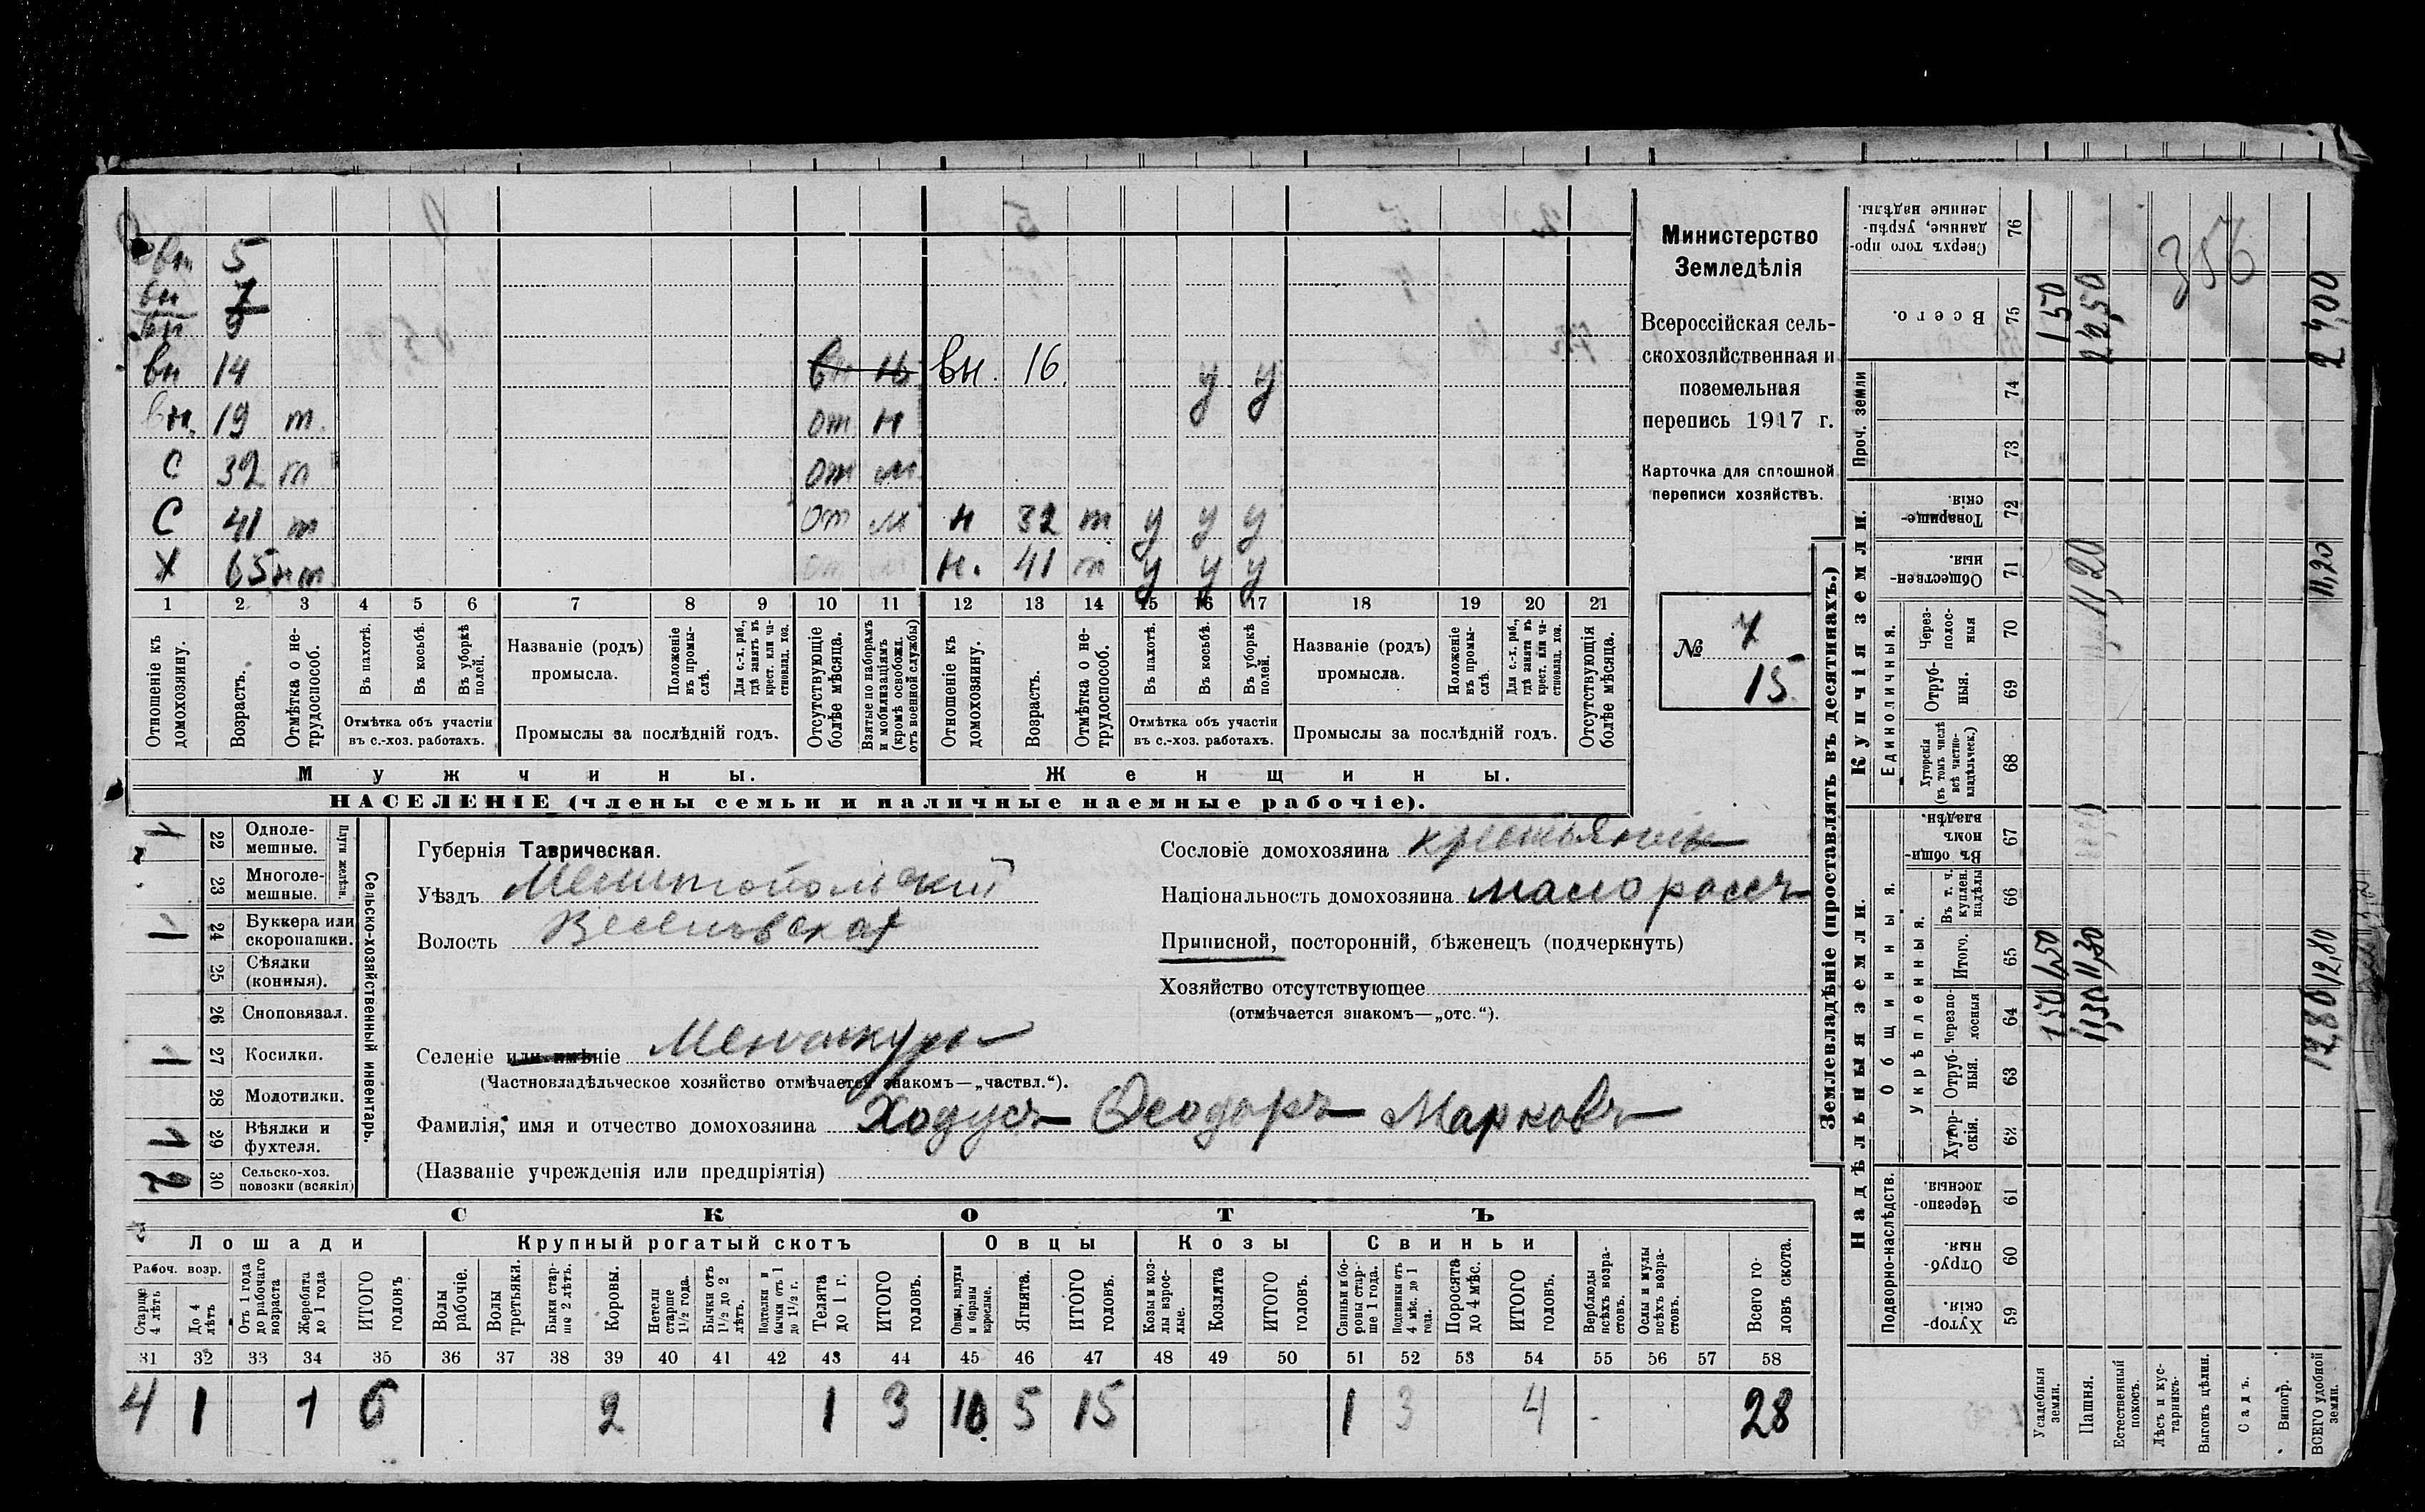 вн 5
вн 7
вн 9
вн 14 вн 16 вн. 16. у у
вн. 19 т. от н
С 32 т от м
С 41 т от м н 32 т у у у
Х 65 нт от м н. 41 т у у у
1 2 3 4 5 6 7 8 9 10 11 12 13 14 15 16 17 18 19 20 21
Отношеніе къ домохозяину.
Возрастъ.
Отмѣтка о нетрудоспособ.
Въ пахотѣ.
Въ косьбѣ.
Въ уборкѣ полей.
Отмѣтка объ участіи въ с.-хоз. работахъ.
Названіе (родъ) промысла.
Положеніе въ промыслѣ.
Для с.-х. раб., гдѣ занятъ въ крест. или частновлад. хоз.
Промыслы за послѣдній годъ.
Отсутствующіе болѣе мѣсяца.
Взятые по наборамъ и мобилизаціямъ (кромѣ освобожд. отъ военной службы)
Отношеніе къ домохозяину.
Возрастъ.
Отмѣтка о нетрудоспособ.
Въ пахотѣ.
Въ косьбѣ.
Въ уборкѣ полей.
Отмѣтка объ участіи въ с.-хоз. работахъ.
Названіе (родъ) промысла.
Положеніе въ промыслѣ.
Для с.-х. раб., гдѣ занята въ крест. или частновлад. хоз.
Промыслы за послѣдній годъ.
Отсутствующія болѣе мѣсяца.
Мужчины. Женщины.
НАСЕЛЕНІЕ (члены семьи и наличные наемные рабочіе).
Министерство
Земледѣлія
Всероссійская сель-
скохозяйственная и
поземельная
перепись 1917 г.
Карточка для сплошной
переписи хозяйствъ.
№ 7
15
Сельско-хозяйственный инвентарь.
Плуги желѣзн.
22 Однолемешные. 1
23 Многолемешные.
24 Буккера или скоропашки. 1
25 Сѣялки (конныя).
26 Сноповязал.
27 Косилки. 1
28 Молотилки.
29 Вѣялки и фухтеля. 1
30 Сельско-хоз. повозки (всякія) 2
Губернія Таврическая.
Уѣздъ Мелитопольский
Волость Веселовская
Селеніе или имѣніе
(Частновладѣльческое хозяйство отмѣчается знакомъ—„частвл.“).
Фамилія, имя и отчество домохозяина Ходусъ Ѳеодоръ Марковъ
(Названіе учрежденія или предпріятія)
Сословіе домохозяина крестьянинъ
Національность домохозяина малороссъ
Приписной, посторонній, бѣженецъ (подчеркнуть)
Хозяйство отсутствующее
(отмѣчается знакомъ—„отс.“).
СКОТЪ
Лошади Крупный рогатый скотъ Овцы Козы Свиньи
Рабоч. возр.
Старше 4 лѣтъ
До 4 лѣтъ
Отъ 1 года до рабочаго возраста
Жеребята до 1 года
ИТОГО головъ
Волы рабочіе.
Волы третьяки.
Быки старше 2 лѣтъ.
Коровы.
Нетели старше 1½ года.
Бычки отъ 1½ до 2 лѣтъ.
Подтелки и бычки отъ 1 до 1½ г.
Телята до 1 г.
ИТОГО головъ.
Овцы, валухи и бараны взрослые.
Ягнята.
ИТОГО головъ.
Козы и козлы взрослые.
Козлята
ИТОГО головъ.
Свиньи и боровы старше 1 года.
Подсвинки отъ 4 мѣс. до 1 года.
Поросята до 4 мѣс.
ИТОГО головъ.
Верблюды всѣхъ возрастовъ.
Ослы и мулы всѣхъ возрастовъ.
Всего головъ скота.
31 32 33 34 35 36 37 38 39 40 41 42 43 44 45 46 47 48 49 50 51 52 53 54 55 56 57 58
4 1 1 6 2 1 3 10 5 15 1 3 4 28
Землевладѣніе (проставлять въ десятинахъ.)
Надѣльныя земли. Купчія земли. Проч. земли
Подворно-наслѣдств. Общинныя. Укрѣпленныя. Единоличныя.
Сверхъ того проданные, укрѣпленные надѣлы. 76
Всего. 75
74
73
Товарищескія. 72
Общественныя. 71
Черезполосныя 70
Отрубныя. 69
Хуторскія (въ томъ числѣ всѣ частновладѣльческ.) 68
Въ общинномъ владѣн. 67
Въ т. ч. куплен. надѣлы 66
Итого. 65
Черезполосныя 64
Отрубныя. 63
Хуторскія. 62
Черезполосныя. 61
Отрубныя. 60
Хуторскія. 59
Усадебныя земли. 1,50 1,50 1,50
Пашня. 11,30 11,30 11,20 22,50
Естественный покосъ.
Лѣсъ и кустарникъ.
Выгонъ цѣлин.
Садъ.
Виногр.
ВСЕГО удобной земли. 12,80 12,80 11,20 24,00
356